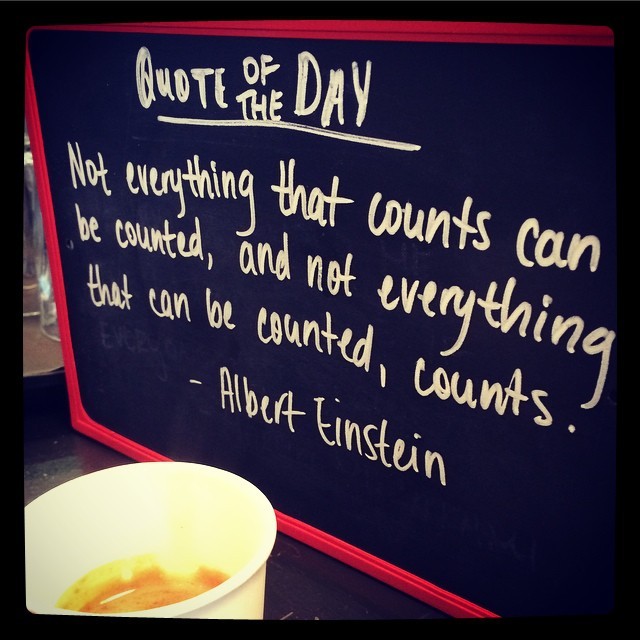 Quote of the Day
Not everything that counts can
be counted, and not everything
that can be counted, counts.
- Albert Einstein